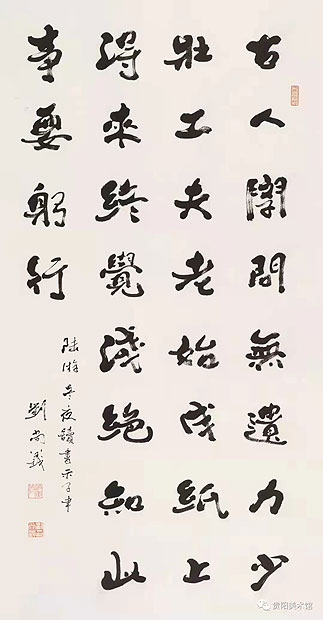 古人學問無遺力少
壯工夫老始成紙上
得來終覺淺絕知此
事要躬行
陸游冬夜讀書示子聿
劉尚義
贵阳美术馆